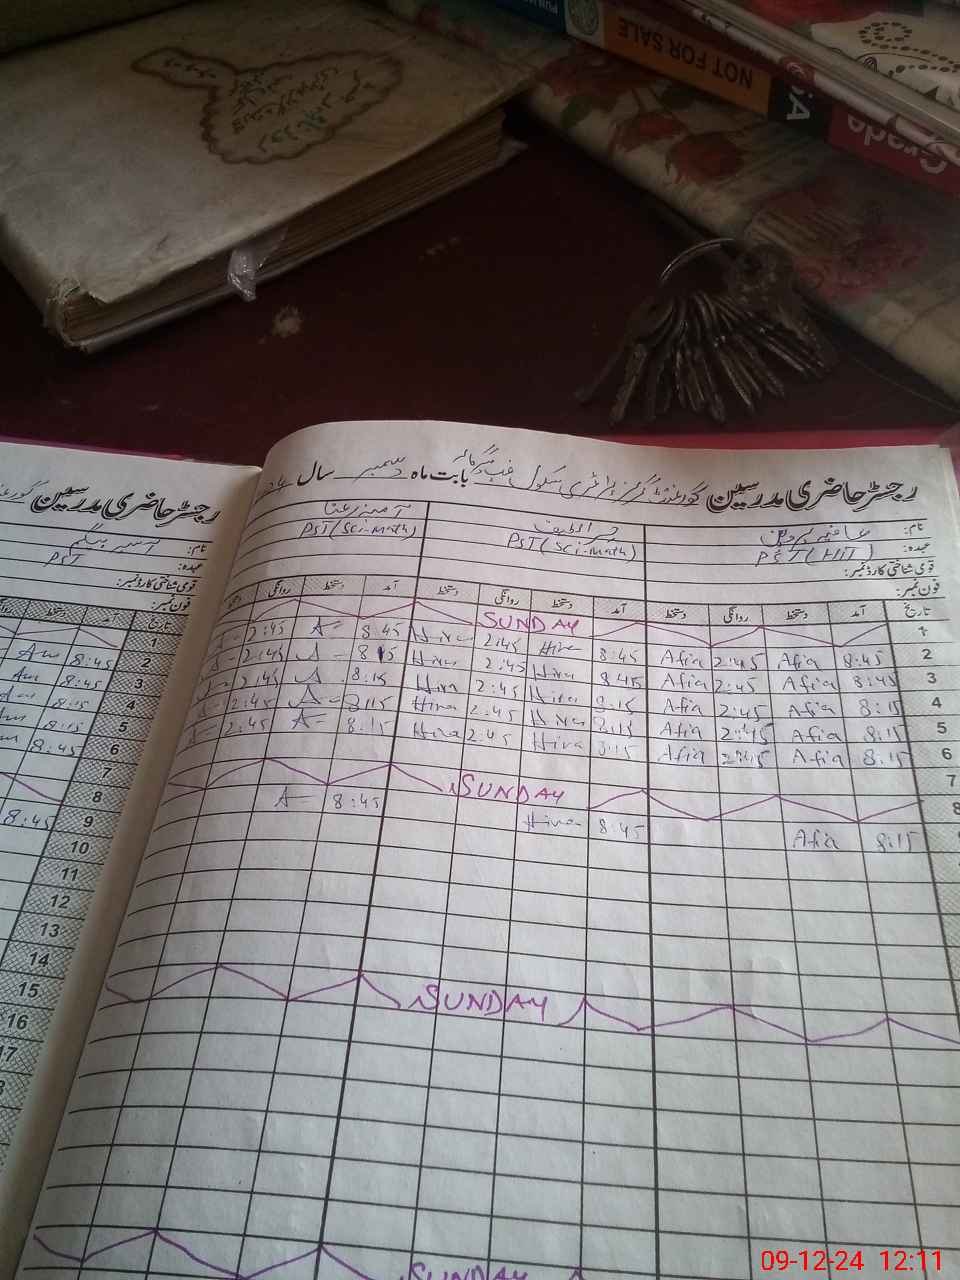 NOT FOR SALE
Grade
رجسٹر حاضری مدرسین گورنمنٹ گرلز پرائمری سکول بابت ماہ دسمبر سال 24
نام:
عہدہ: PST (HIT) PST (Sci-Math) PST (Sci-Math)
قومی شناختی کارڈ نمبر:
فون نمبر:
تاریخ آمد دستخط روانگی دستخط آمد دستخط روانگی دستخط آمد دستخط روانگی دستخط
1 SUNDAY
2 8:45 Afia 2:45 Afia 8:45 Hira 2:45 Hira 8:45 A 2:45 A
3 8:45 Afia 2:45 Afia 8:45 Hira 2:45 Hira 8:15 A 2:45 A
4 8:15 Afia 2:45 Afia 8:15 Hira 2:45 Hira 8:15 A 2:45 A
5 8:15 Afia 2:45 Afia 8:15 Hira 2:45 Hira 8:15 A 2:45 A
6 8:15 Afia 2:45 Afia 8:15 Hira 2:45 Hira 8:15 A 2:45 A
7
8 SUNDAY
8:15 Afia 8:45 Hira 8:45 A
SUNDAY
SUNDAY
رجسٹر حاضری مدرسین
نام:
عہدہ: PST
قومی شناختی کارڈ نمبر:
فون نمبر:
1
2 8:45
3 8:45
4 8:15
5 8:15
6 8:45
7
8
9 8:45
10
11
12
13
14
15
16
17
09-12-24 12:11